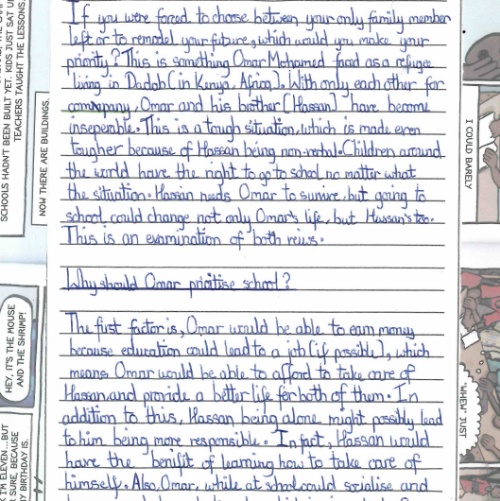 If you were forced to choose between your only family member
left or to remodel your future, which would you make your
priority? This is something Omar Mohamed faced as a refuge
living in Dadab (in Kenya, Africa). With only each other for
company, Omar and his brother (Hassan) have become
inseperable. This is a tough situation, which is made even
tougher because of Hassan being non-verbal. Children around
the world have the right to go to school no matter what
the situation. Hassan needs Omar to survive, but going to
school could change not only Omar's life, but Hassan's too.
This is an examination of both veiws.
Why should Omar prioritise school?
The first factor is, Omar would be able to earn money
because education could lead to a job (if possible), which
means Omar would be able to afford to take care of
Hassan and provide a better life for both of them. In
addition to this, Hassan being alone might possibly lead
to him being more responsible. In fact, Hassan would
have the benifit of learning how to take care of
himself. Also, Omar, while at school could socialise and
SCHOOLS HADN'T BEEN BUILT YET. KIDS JUST SAT U
TEACHERS TAUGHT THE LESSONS.
NOW THERE ARE BUILDINGS.
HEY, IT'S THE MOUSE
AND THE SHRIMP!
I'M ELEVEN... BUT
SURE, BECAUSE
BIRTHDAY IS.
I COULD BARELY
"WHEN" JUST